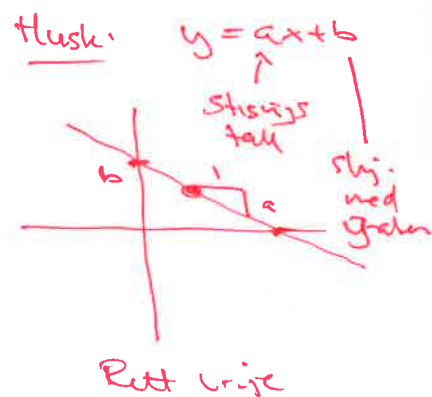 Husk:
y = ax + b
Stignings
tall
b
1
a
skj.
med
y-aksen
Rett linje